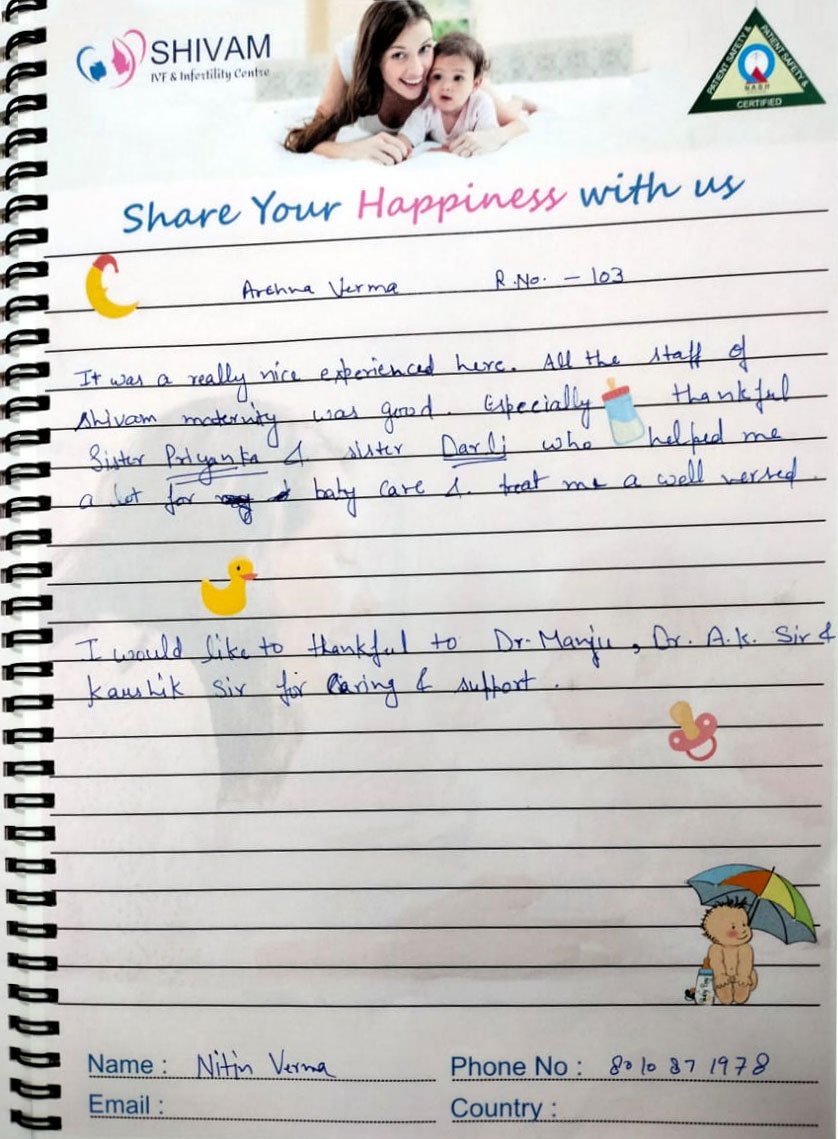 SHIVAM
IVF & Infertility Centre
PATIENT SAFETY &
PATIENT SAFETY &
NABH
CERTIFIED
Share Your Happiness with us
Archna Verma R.No. - 103
It was a really nice experienced here. All the staff of
Shivam maternity was good. Especially thankful
Sister Priyanka & sister Darli who helped me
a lot for baby care & treat me a well versed.
I would like to thankful to Dr. Manju, Dr. A.K. Sir &
Kaushik Sir for Caring & support.
Name : Nitin Verma Phone No : 8010871978
Email : Country :